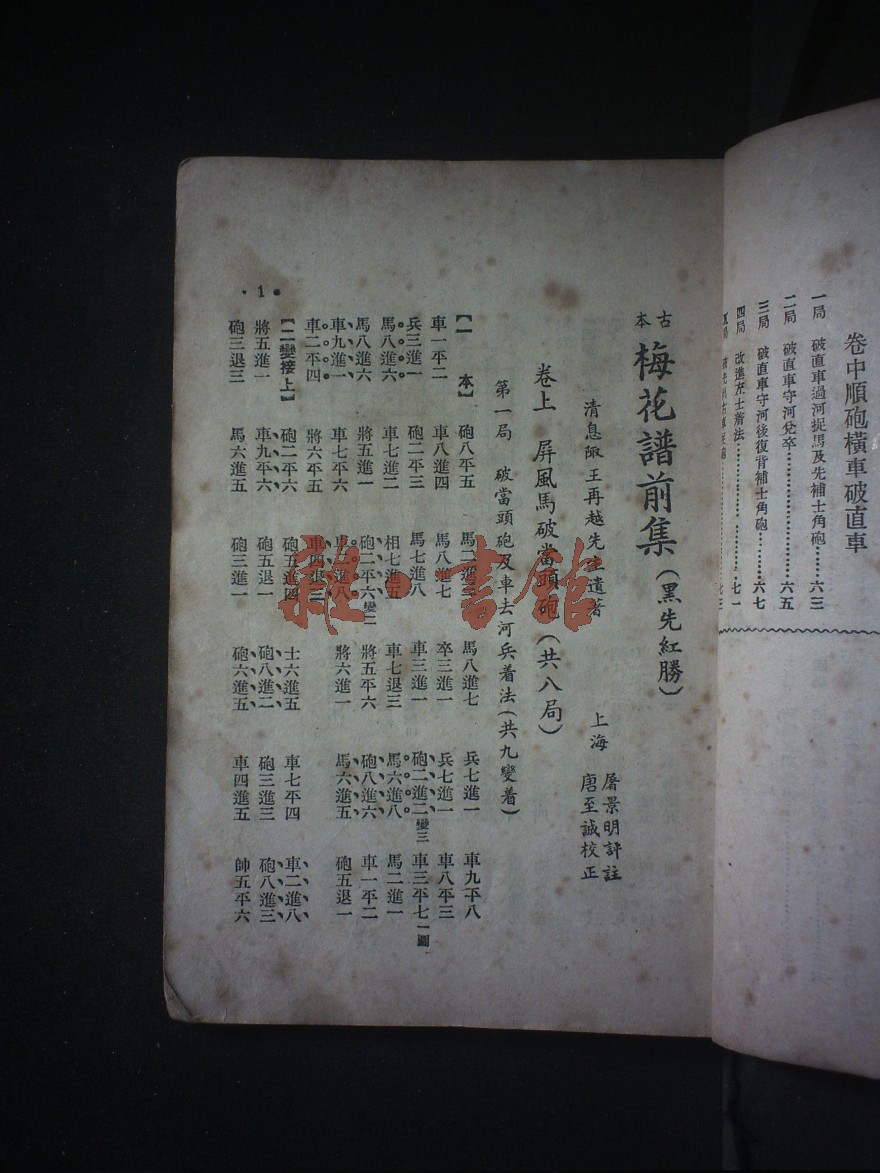 卷中順砲橫車破直車
一局 破直車過河捉馬及先補士角砲……六三
二局 破直車守河兌卒……………………六五
三局 破直車守河後復背補士角砲………六七
四局 改進左士着法………………………七一
古本 梅花譜前集(黑先紅勝)
清息陬王再越先生遺著 上海 屠景明評註 唐至誠校正
卷上 屏風馬破當頭砲(共八局)
第一局 破當頭砲及車去河兵着法(共九變着)
【一 本】 砲八平五 馬二進三 馬八進七 兵七進一 車九平八
車一平二 車八進四 馬八進七 卒三進一 兵七進一 車八平三
兵三進一 砲二平三 馬七進八 車三進一 砲二進二變三 車三平七一圖
馬八進六 車七進二 相七進五 車七退三 馬六進八 馬二進一
馬八進六 將五進一 砲二平六變二 將五平六 砲八進六 車一平二
車九進一 車七平六 車二進八 將六進一 馬六進五 砲五退一
車二平四 將六平五 車四退三
【二變接上】 砲二平六 砲五進四 士六進五 車七平四 車二進八
將五進一 車九平六 砲五退一 砲八進二 砲三進三 砲八進三
砲三退三 馬六進五 砲三進一 砲六進五 車四進五 帥五平六
·1·
雜·書館